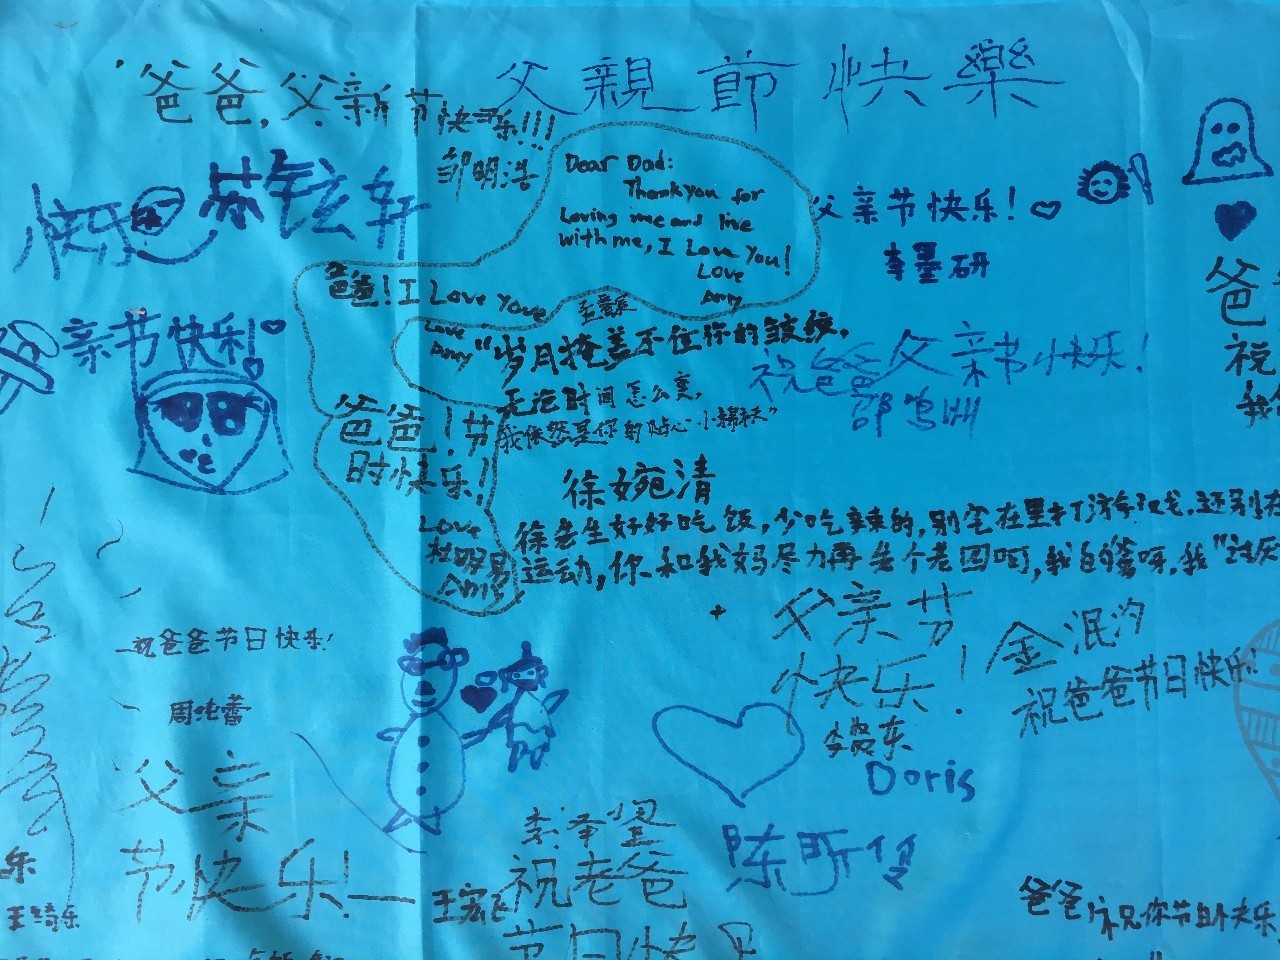 爸爸,父亲节快乐!!!
邹明浩
父親節快樂
Dear Dad:
Thank you for
Loving me and live
with me, I Love You!
Love
Amy
父亲节快乐!
李墨研
快乐
爸爸! I Love You
Love
Amy
亲节快乐!
"岁月掩盖不住你的皱纹,
无论时间怎么变,
我依然是你的贴心小棉袄"
徐婉清
祝爸爸父亲节快乐!
邵鸣洲
爸
祝
我
爸爸!节
时快乐!
Love
Amy
徐先生好好吃饭,少吃辣的,别宅在里打游戏,还别在
运动,你和我妈尽力再多个老四啊,我的爹呀,我"讨厌
父亲节
快乐!
金泯汐
祝爸爸节日快乐!
祝爸爸节日快乐!
Doris
父亲
节快乐!
祝老爸
节日快乐
乐
王绮乐
爸爸祝你节日快乐